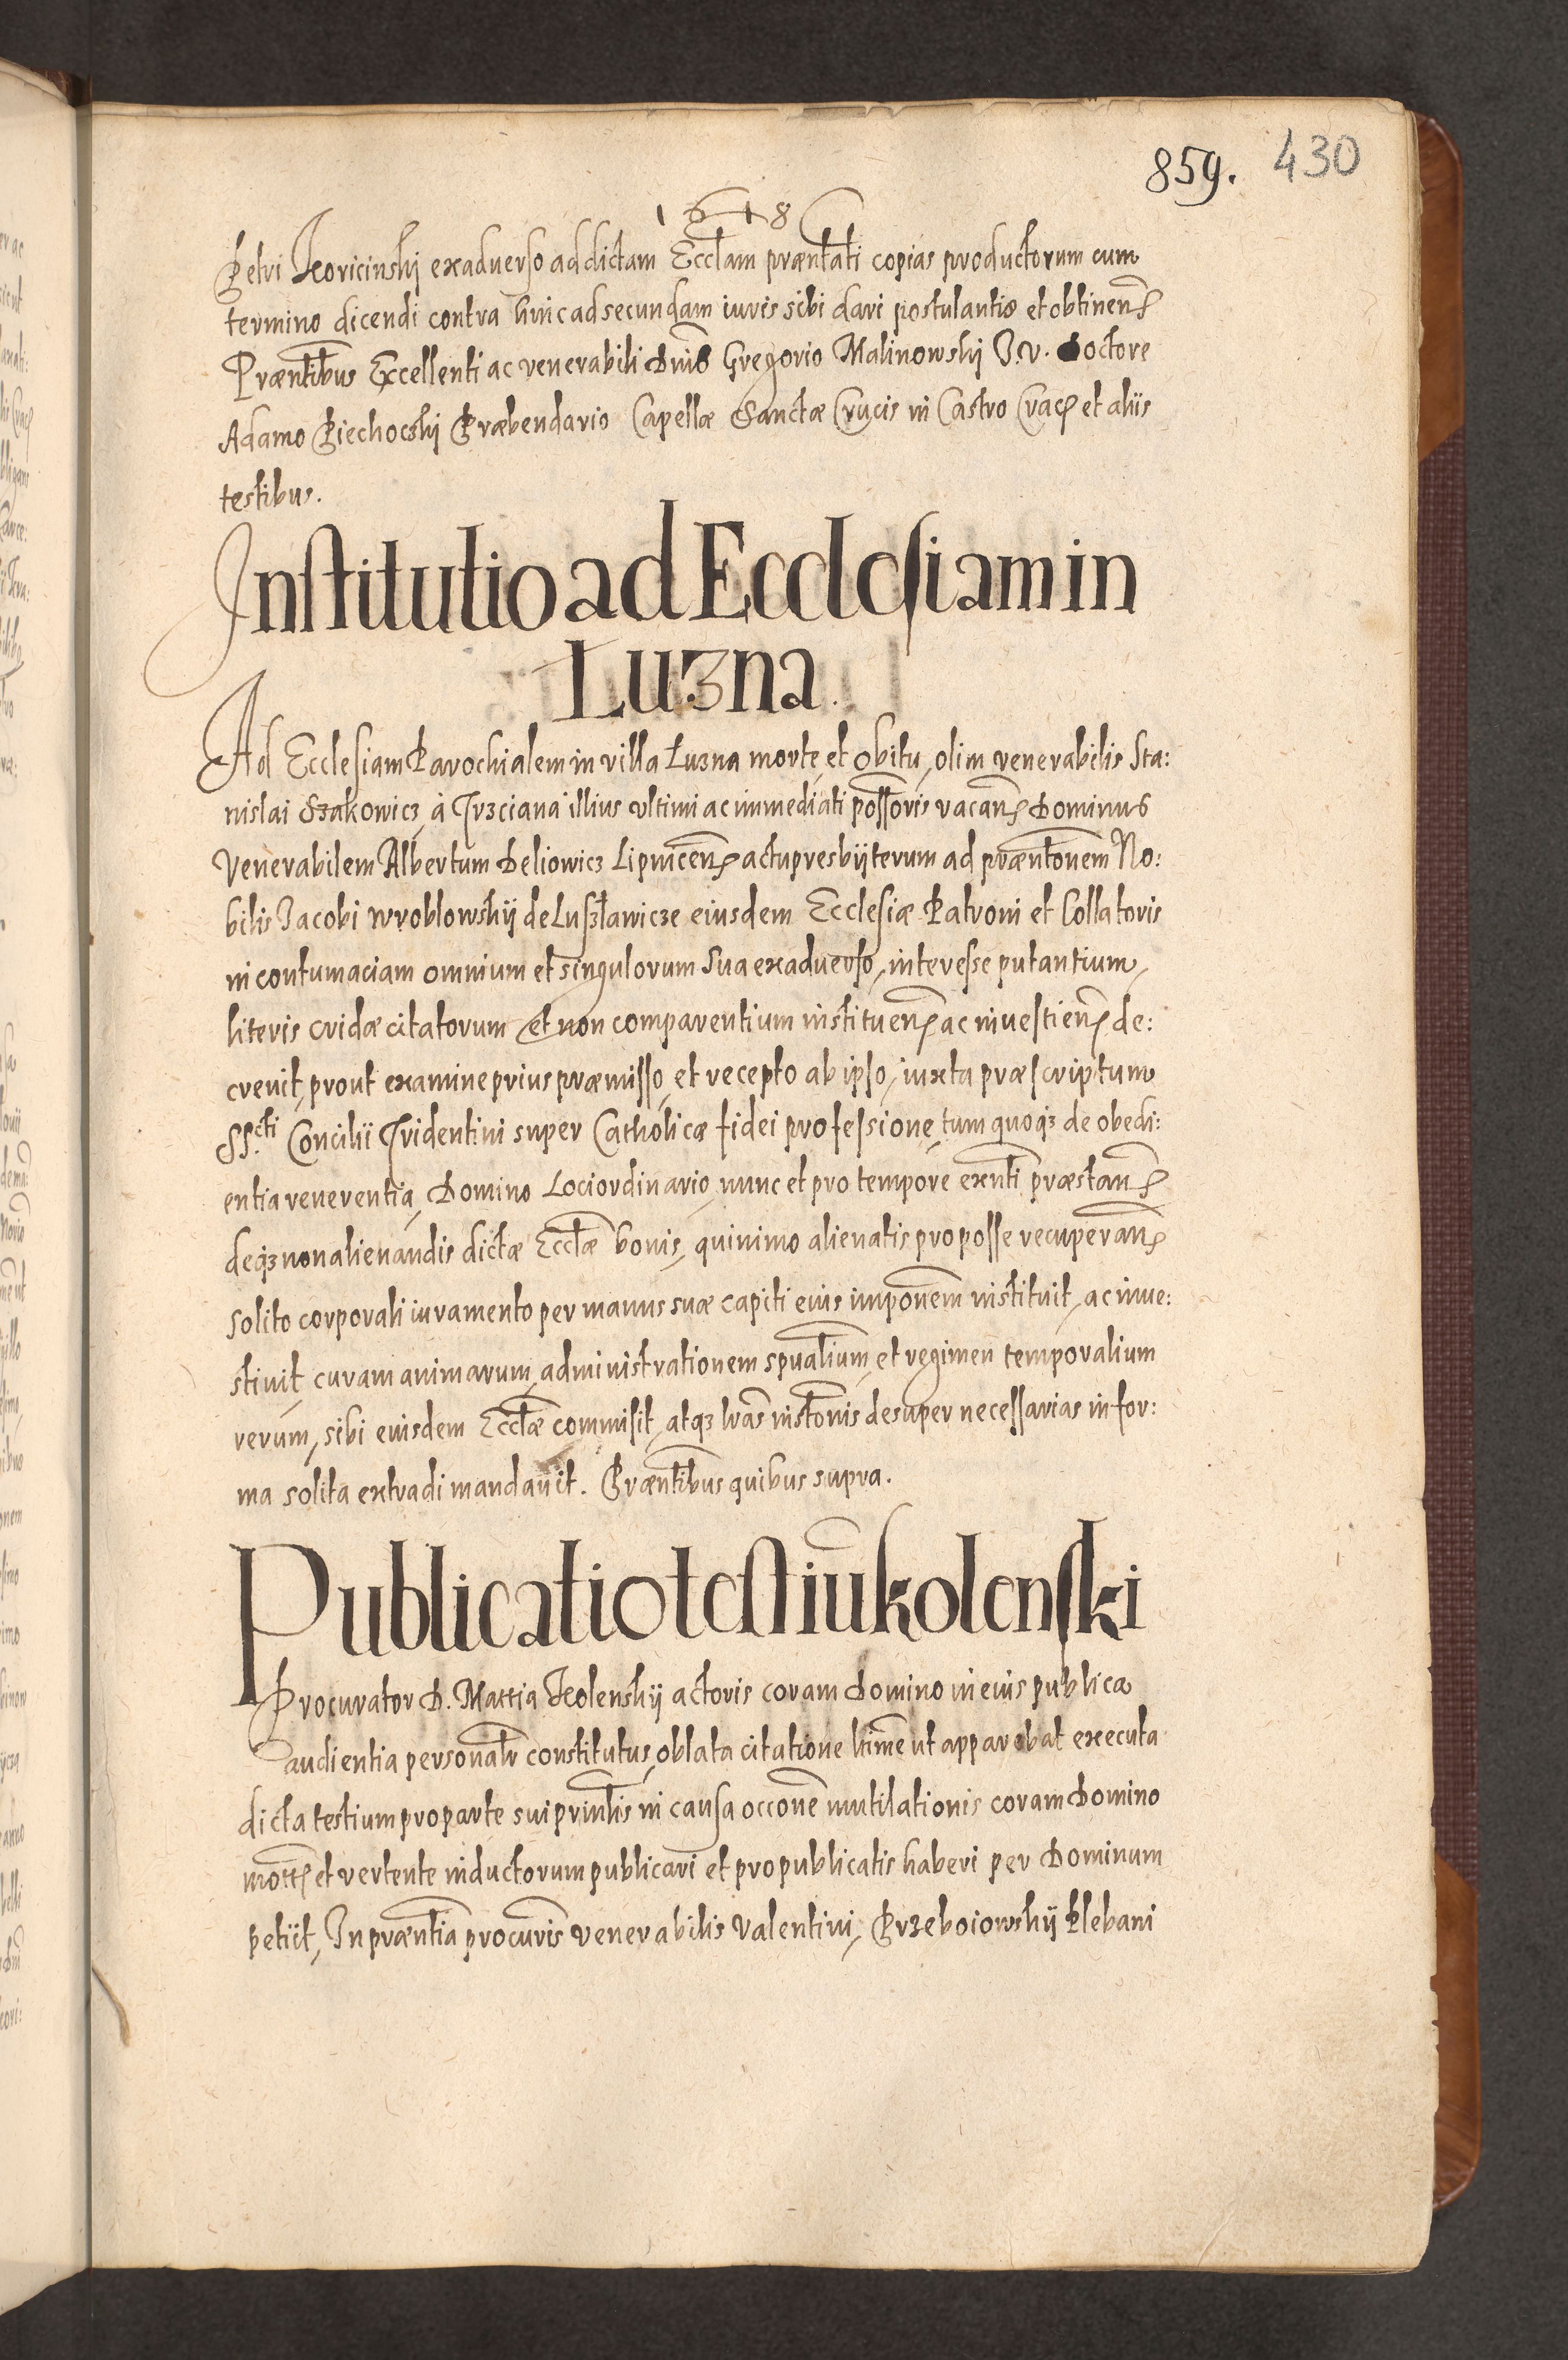 859. 430
1618
Petri Koricinskij exaduerso ad dictam Eccłam præntati copias productorum cum
termino dicendi contra huic ad secundam iuris sibi dari postulantis et obtinen̄
Præntibus Excellenti ac venerabili Dnis Gregorio Malinowskij J.V. Doctore
Adamo Piechockij Præbendario Capellæ Sanctæ Crucis in Castro Crac et aliis
testibus.
Institutio ad Ecclesiam in
Luzna
Ad Ecclesiam Parochialem in villa Luzna morte, et obitu, olim venerabilis Sta:
nislai Szakowicz, à Trzciana illius vltimi ac immediati possoris vacan̄ Dominus
Venerabilem Albertum Deliowicz Lipnicen̄ actu presbyterum ad præntonem No:
bilis Jacobi Wroblowskij de Luszławicze eiusdem Ecclesiæ Patroni et Collatoris
in contumaciam omnium et singulorum sua exaduerso, interesse putantium,
literis cridæ citatorum et non comparentium instituen̄ ac inuestien̄ de:
creuit, prout examine prius præmisso, et recepto ab ipso, iuxta præscriptum
SS.cti Concilii Tridentini super Catholicæ fidei professione, tum quoqz de obedi:
entia reuerentia, Domino Loci ordinario, nunc et pro tempore exnti præstan̄
deqz non alienandis dictæ Eccłæ bonis, quinimo alienatis pro posse recuperan̄
solito corporali iuramento per manus suæ capiti eius imponem instituit, ac inue:
stiuit, curam animarum, administrationem spualium, et regimen temporalium
rerum, sibi eiusdem Eccłæ commisit, atqz lras instonis desuper necessarias in for:
ma solita extradi mandauit. Præntibus quibus supra.
Publicatio testiū kolenski
Procurator D. Mattia Kolenskij actoris coram Domino in eius publica
audientia personalr constitutus, oblata citatione ltime ut apparebat executa
dicta testium pro parte sui prinlis in causa occone mutilationis coram Domino
mott̄ et vertente inductorum publicari et pro publicatis haberi per Dominum
petiit, In præntia procuris venerabilis Valentini, Przeboiowskij Plebani